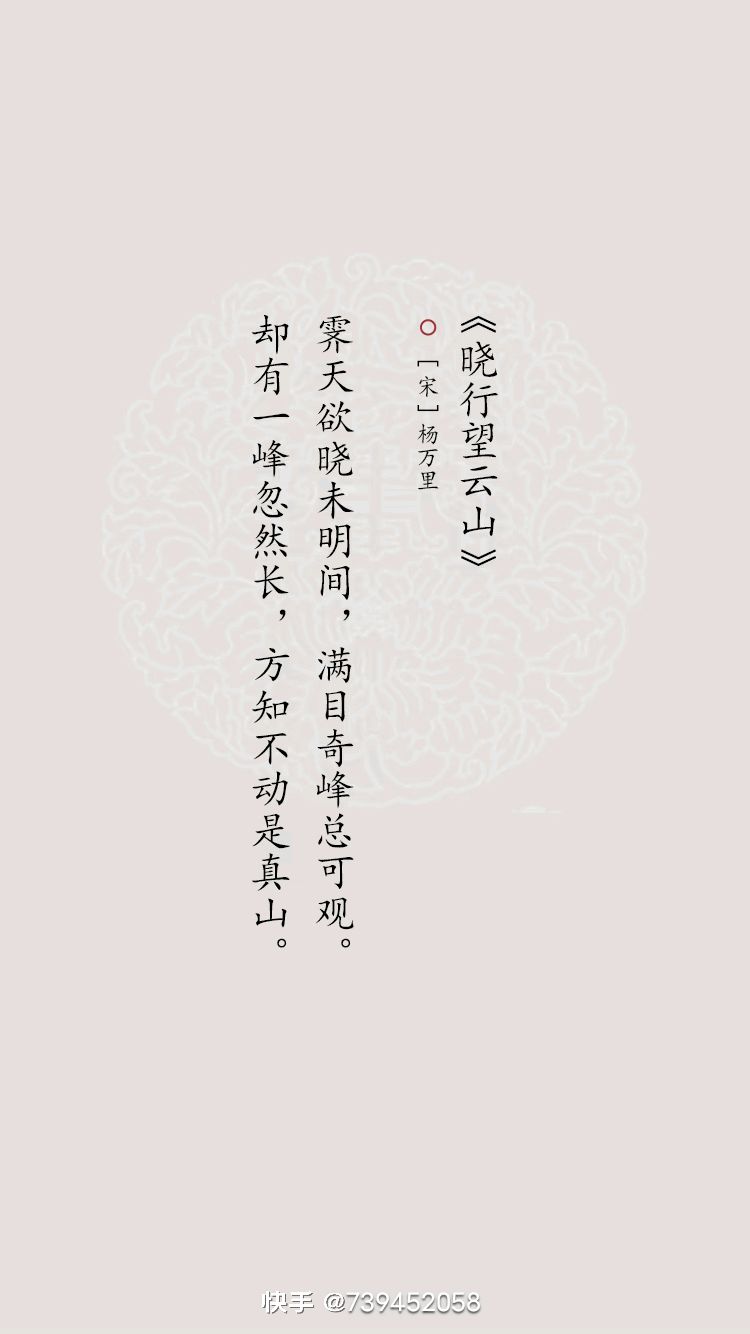 《晓行望云山》
［宋］杨万里
霁天欲晓未明间，满目奇峰总可观。
却有一峰忽然长，方知不动是真山。
快手 @739452058